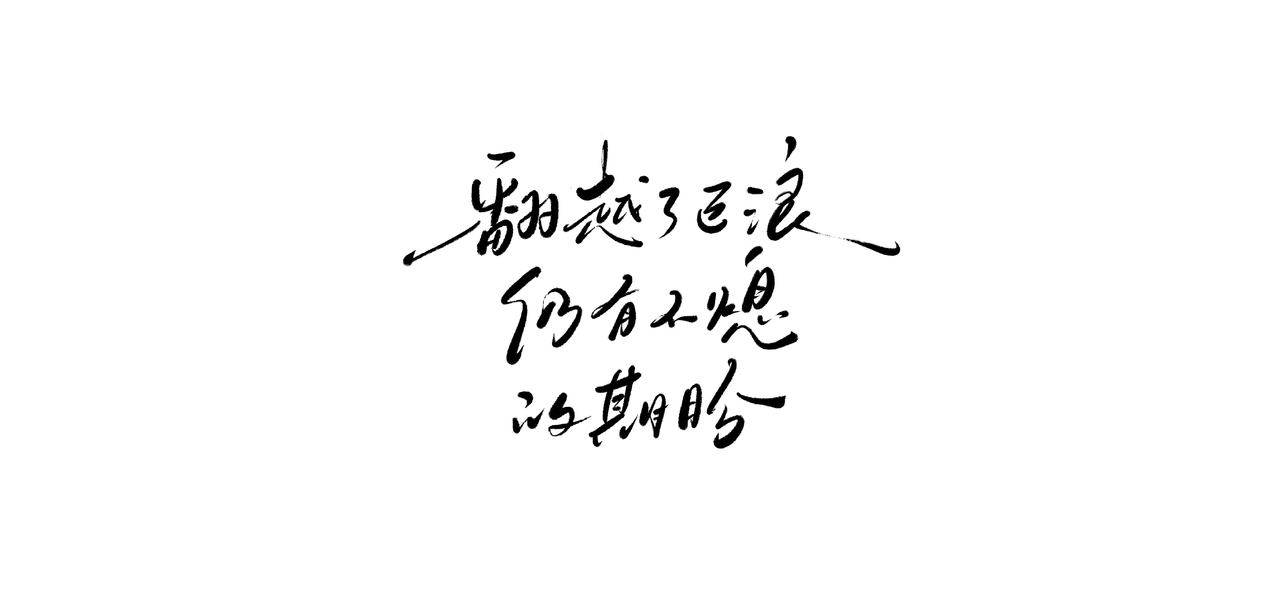 翻越了巨浪
仍有不熄
的期盼